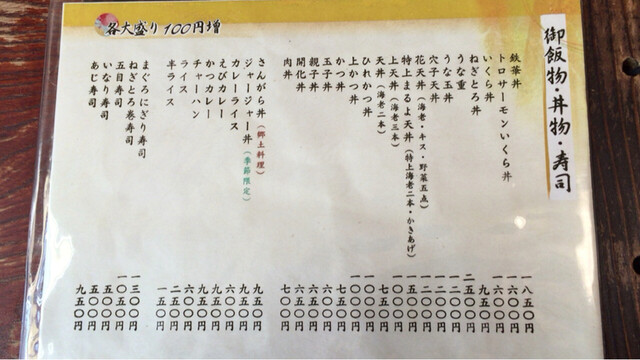 御飯物・丼物・寿司
各大盛り100円増
鉄華丼 一八五〇円
トロサーモンいくら丼 一六〇〇円
いくら丼 一六〇〇円
ねぎとろ丼 九五〇円
うな重 二五〇〇円
うな玉丼
穴子天丼
花天丼(海老・キス・野菜五点)
特上まるよ天丼(特上海老二本・かきあげ) 一五〇〇円
上天丼(海老三本)
天丼(海老二本) 七五〇円
ひれかつ丼
上かつ丼
かつ丼 七五〇円
玉子丼 六〇〇円
親子丼 六五〇円
開化丼
肉丼 七〇〇円
さんがら丼(郷土料理) 九五〇円
ジャージャー丼(季節限定) 九五〇円
カレーライス 六〇〇円
えびカレー 九五〇円
かつカレー 九五〇円
チャーハン 六〇〇円
ライス 二五〇円
半ライス 一五〇円
まぐろにぎり寿司 一三〇〇円
ねぎとろ巻寿司 一〇五〇円
五目寿司 五〇〇円
いなり寿司 五〇〇円
あじ寿司 九五〇円